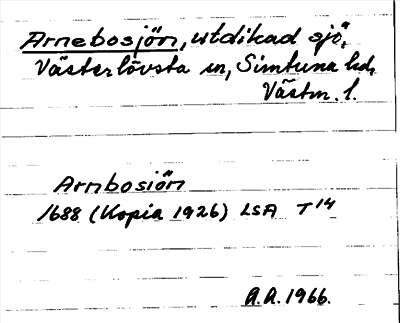 Arnebosjön, utdikad sjö,
Västerlövsta sn, Simtuna hd,
Västm. l.
Arnbosiön
1688 (Kopia 1926) LSA T 14
A.A. 1966.